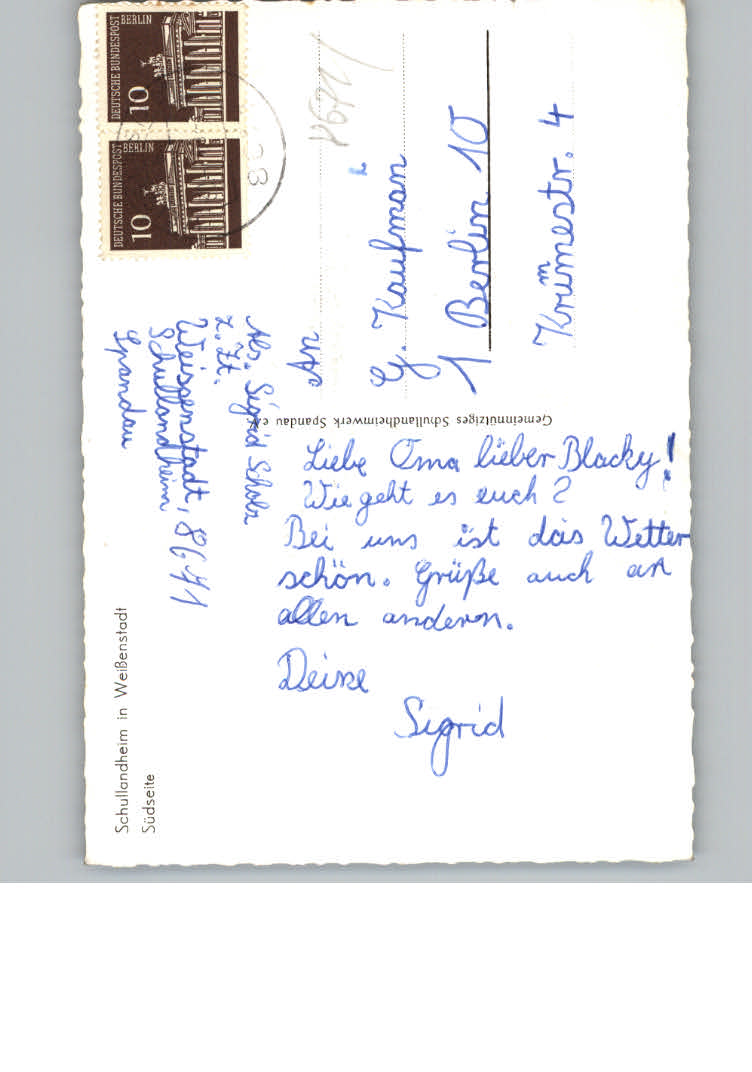 Schullandheim in Weißenstadt
Südseite
Abs. Sigrid Scholz
z. Zt.
Weissenstadt, 8671
Schullandheim
Spandau
Gemeinnütziges Schullandheimwerk Spandau e.V.
DEUTSCHE BUNDESPOST
BERLIN
10
DEUTSCHE BUNDESPOST
BERLIN
10
8671
An
G. Kaufman
1 Berlin 10
Krumestr. 4
m
Liebe Oma lieber Blacky!
Wie geht es euch?
Bei uns ist das Wetter
schön. Grüße auch an
allen anderen.
Deine
Sigrid